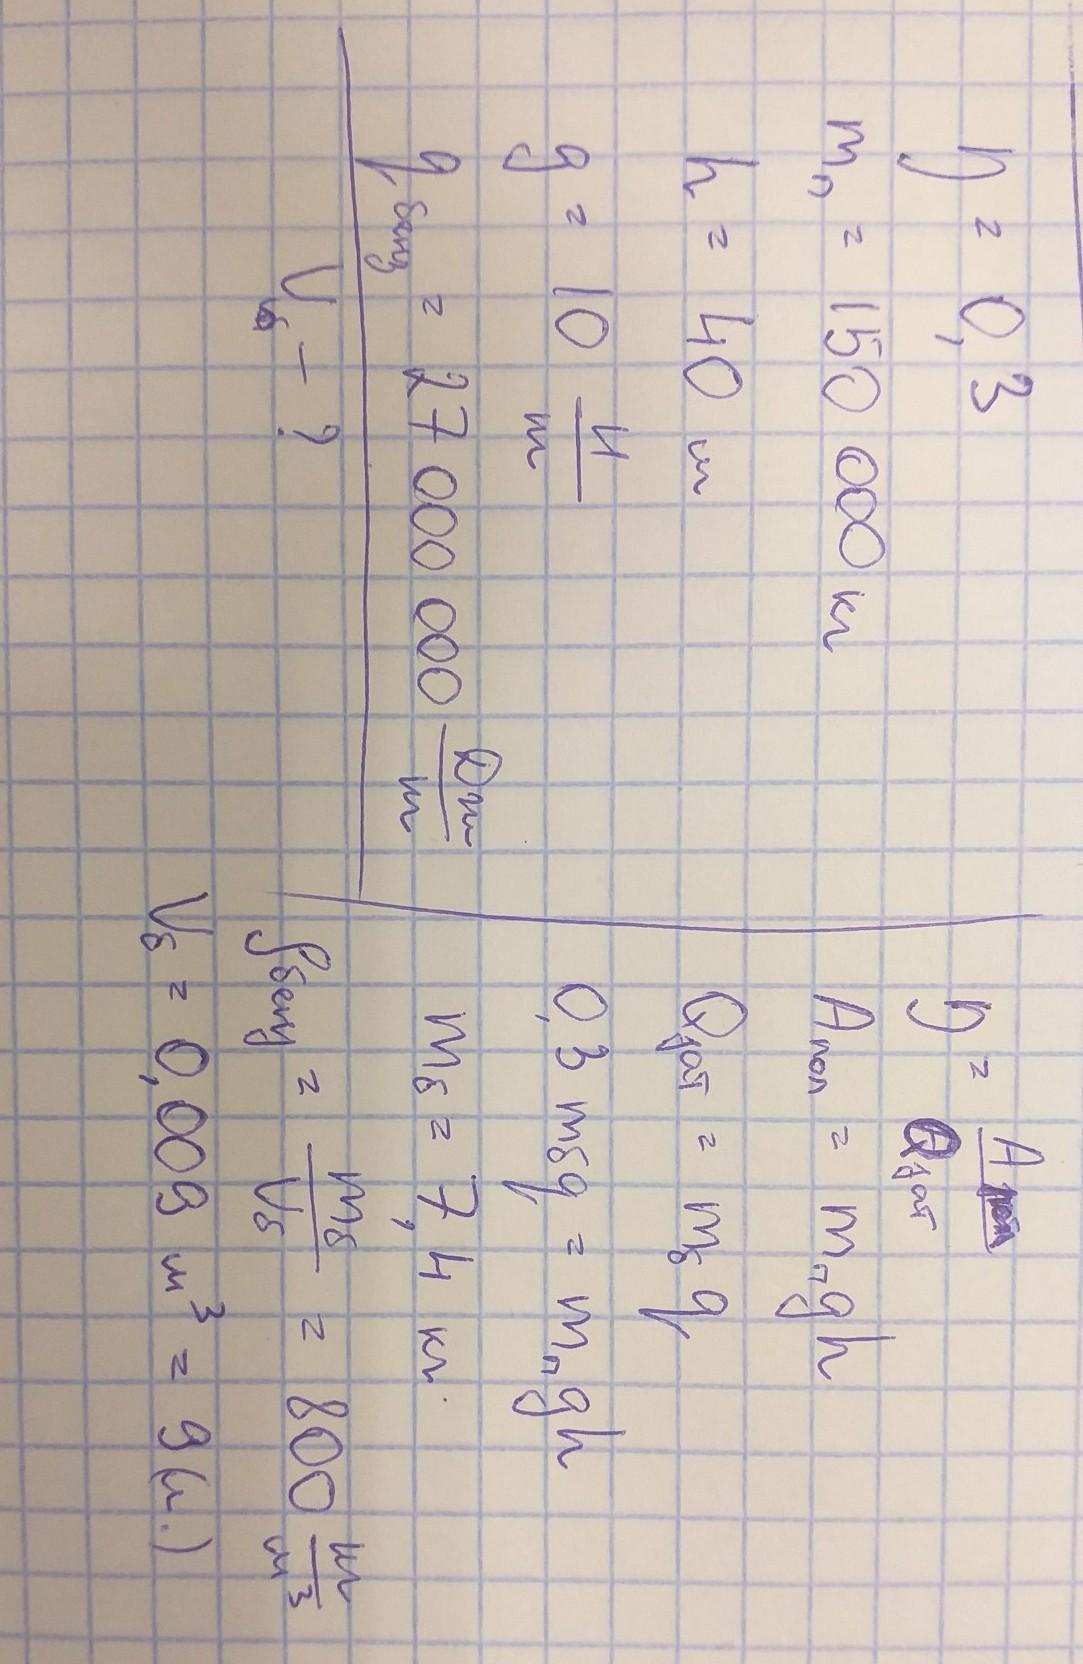 η = 0,3
mₙ = 150 000 кг
h = 40 м
g = 10 Н/кг
q бенз = 27 000 000 Дж/кг
Vб - ?
η = A пол / Q зат
A пол = mₙgh
Q зат = mбq
0,3 mбq = mₙgh
mб = 7,4 кг.
ρ бенз = mб/Vб = 800 кг/м³
Vб = 0,009 м³ = 9 (л.)